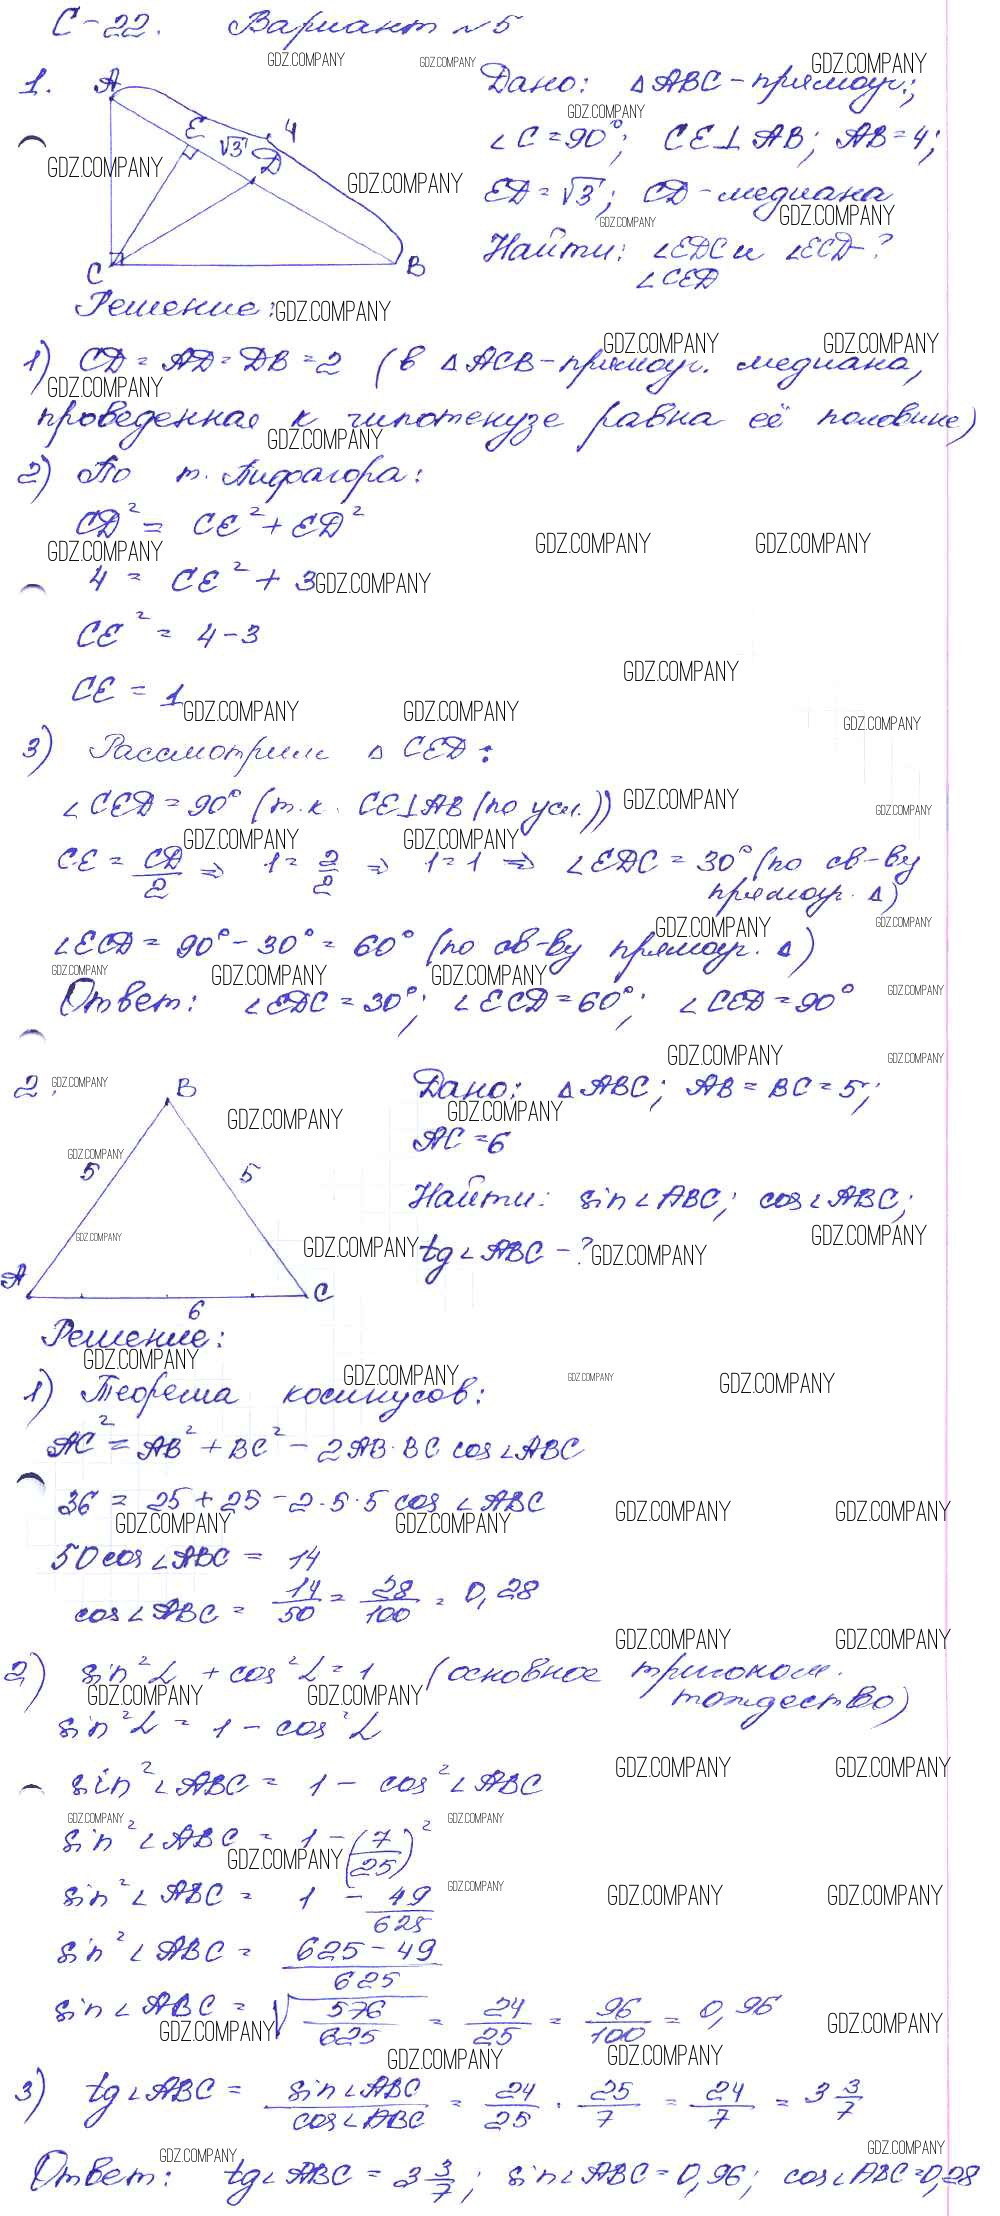 С-22. Вариант №5
1. Дано: △ABC - прямоуг.;
∠C = 90°; CE⊥AB; AB = 4;
ED = √3; CD - медиана
Найти: ∠EDC и ∠ECD - ?
∠CED
A
E
√3
D
4
C
B
Решение:
1) CD = AD = DB = 2 (в △ACB - прямоуг. медиана,
проведенная к гипотенузе равна её половине)
2) По т. Пифагора:
CD² = CE² + ED²
4 = CE² + 3
CE² = 4 - 3
CE = 1
3) Рассмотрим △CED:
∠CED = 90° (т.к. CE⊥AB (по усл.))
CE = CD/2 ⇒ 1 = 2/2 ⇒ 1 = 1 ⇒ ∠EDC = 30° (по св-ву
прямоуг. △)
∠ECD = 90° - 30° = 60° (по св-ву прямоуг. △)
Ответ: ∠EDC = 30°; ∠ECD = 60°; ∠CED = 90°
2. Дано: △ABC; AB = BC = 5;
AC = 6
Найти: sin∠ABC; cos∠ABC;
tg∠ABC - ?
B
5
5
A
6
C
Решение:
1) Теорема косинусов:
AC² = AB² + BC² - 2AB·BC cos∠ABC
36 = 25 + 25 - 2·5·5 cos∠ABC
50cos∠ABC = 14
cos∠ABC = 14/50 = 28/100 = 0,28
2) sin²L + cos²L = 1 (основное тригоном.
тождество)
sin²L = 1 - cos²L
sin²∠ABC = 1 - cos²∠ABC
sin²∠ABC = 1 - (7/25)²
sin²∠ABC = 1 - 49/625
sin²∠ABC = (625 - 49)/625
sin∠ABC = √(576/625) = 24/25 = 96/100 = 0,96
3) tg∠ABC = sin∠ABC/cos∠ABC = 24/25 · 25/7 = 24/7 = 3 3/7
Ответ: tg∠ABC = 3 3/7; sin∠ABC = 0,96; cos∠ABC = 0,28
GDZ.COMPANY